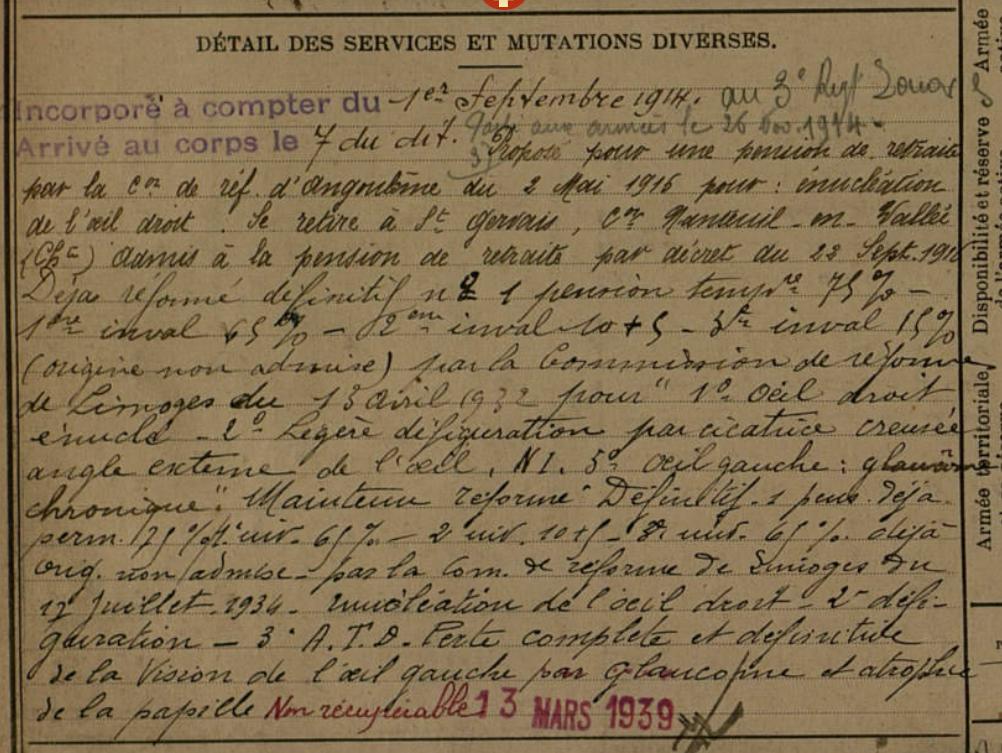 DÉTAIL DES SERVICES ET MUTATIONS DIVERSES.
Incorporé à compter du 1er Septembre 1914. au 3e Regt Zouav
Arrivé au corps le 7 du dit. Parti aux armées le 26 nov. 1914.
Proposé pour une pension de retraite
par la Con de réf. d'Angoulême du 2 Mai 1916 pour : énucléation
de l'œil droit. Se retire à St Gervais, Con Nanteuil-en-Vallée
(Chte) Admis à la pension de retraite par décret du 22 Sept. 1916
Déjà réformé définitif n° 1 pension tempre 75 % -
1ère inval 65 % - 2ème inval 10+5 - 3e inval 15 %
(origine non admise) par la Commission de réforme
de Limoges du 13 avril 1932 pour " 1° Oeil droit
énuclé - 2° Légère défiguration par cicatrice creusée
angle externe de l'œil, N I. 3° œil gauche : glaucome
chronique". Maintenu réformé Définitif. 1 pens. déjà
perm. 75 % 1e inv. 65 % - 2 inv. 10+5 - 3e inv. 65 %. déjà
orig. non admise - par la Com. de réforme de Limoges du
12 Juillet 1934. énucléation de l'œil droit - 2° défi-
guration - 3° A.T.D. Perte complète et définitive
de la Vision de l'œil gauche par glaucome et atrophie
de la papille Non récupérable 13 MARS 1939
Armée
Disponibilité et réserve
Armée territoriale